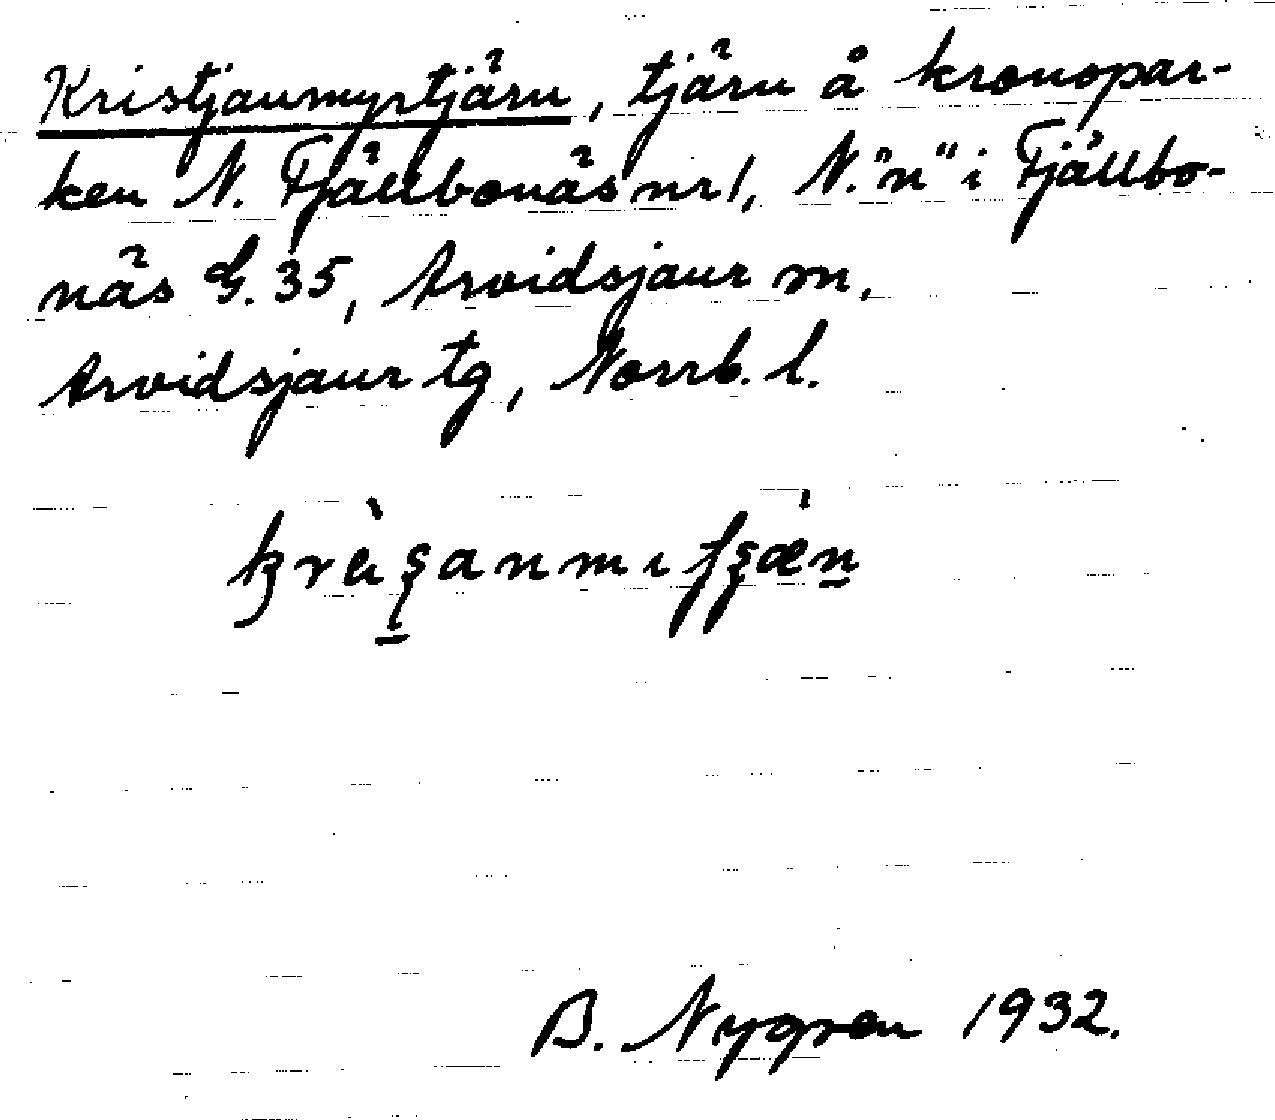 Kristjanmyrtjärn, tjärn å kronopar-
ken N. Fjällbonäs nr 1, N. "n" i Fjällbo-
näs G. 35, Arvidsjaur sn,
Arvidsjaur tg, Norrb. l.
B. Nygren 1932.